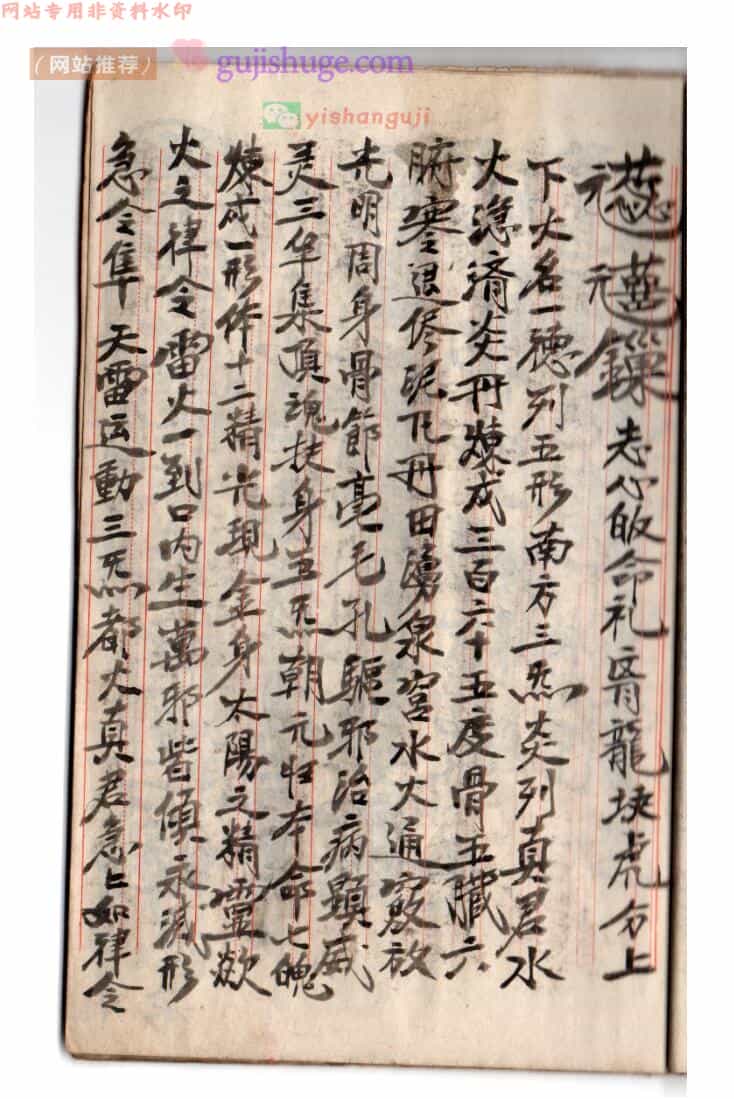 网站专用非资料水印
(网站推荐)
gujishuge.com
yishanguji
志心皈命礼 龍 虎分上
下大名一德列五形南方三炁炎列真君水
火 济炎丹煉成三百六十五度骨五臟六
腑寒退 泥 丹田湧泉宮水火通竅放
光明周身骨節毫毛孔驅邪治病顯威
灵三华集頂魂扶身五炁朝元归本命七魄
煉成一形体十二精光現金身太陽之精靈
火之律令雷火一到口内生萬邪皆傾永滅形
急令隼天雷运動三炁都火真君急上如律令